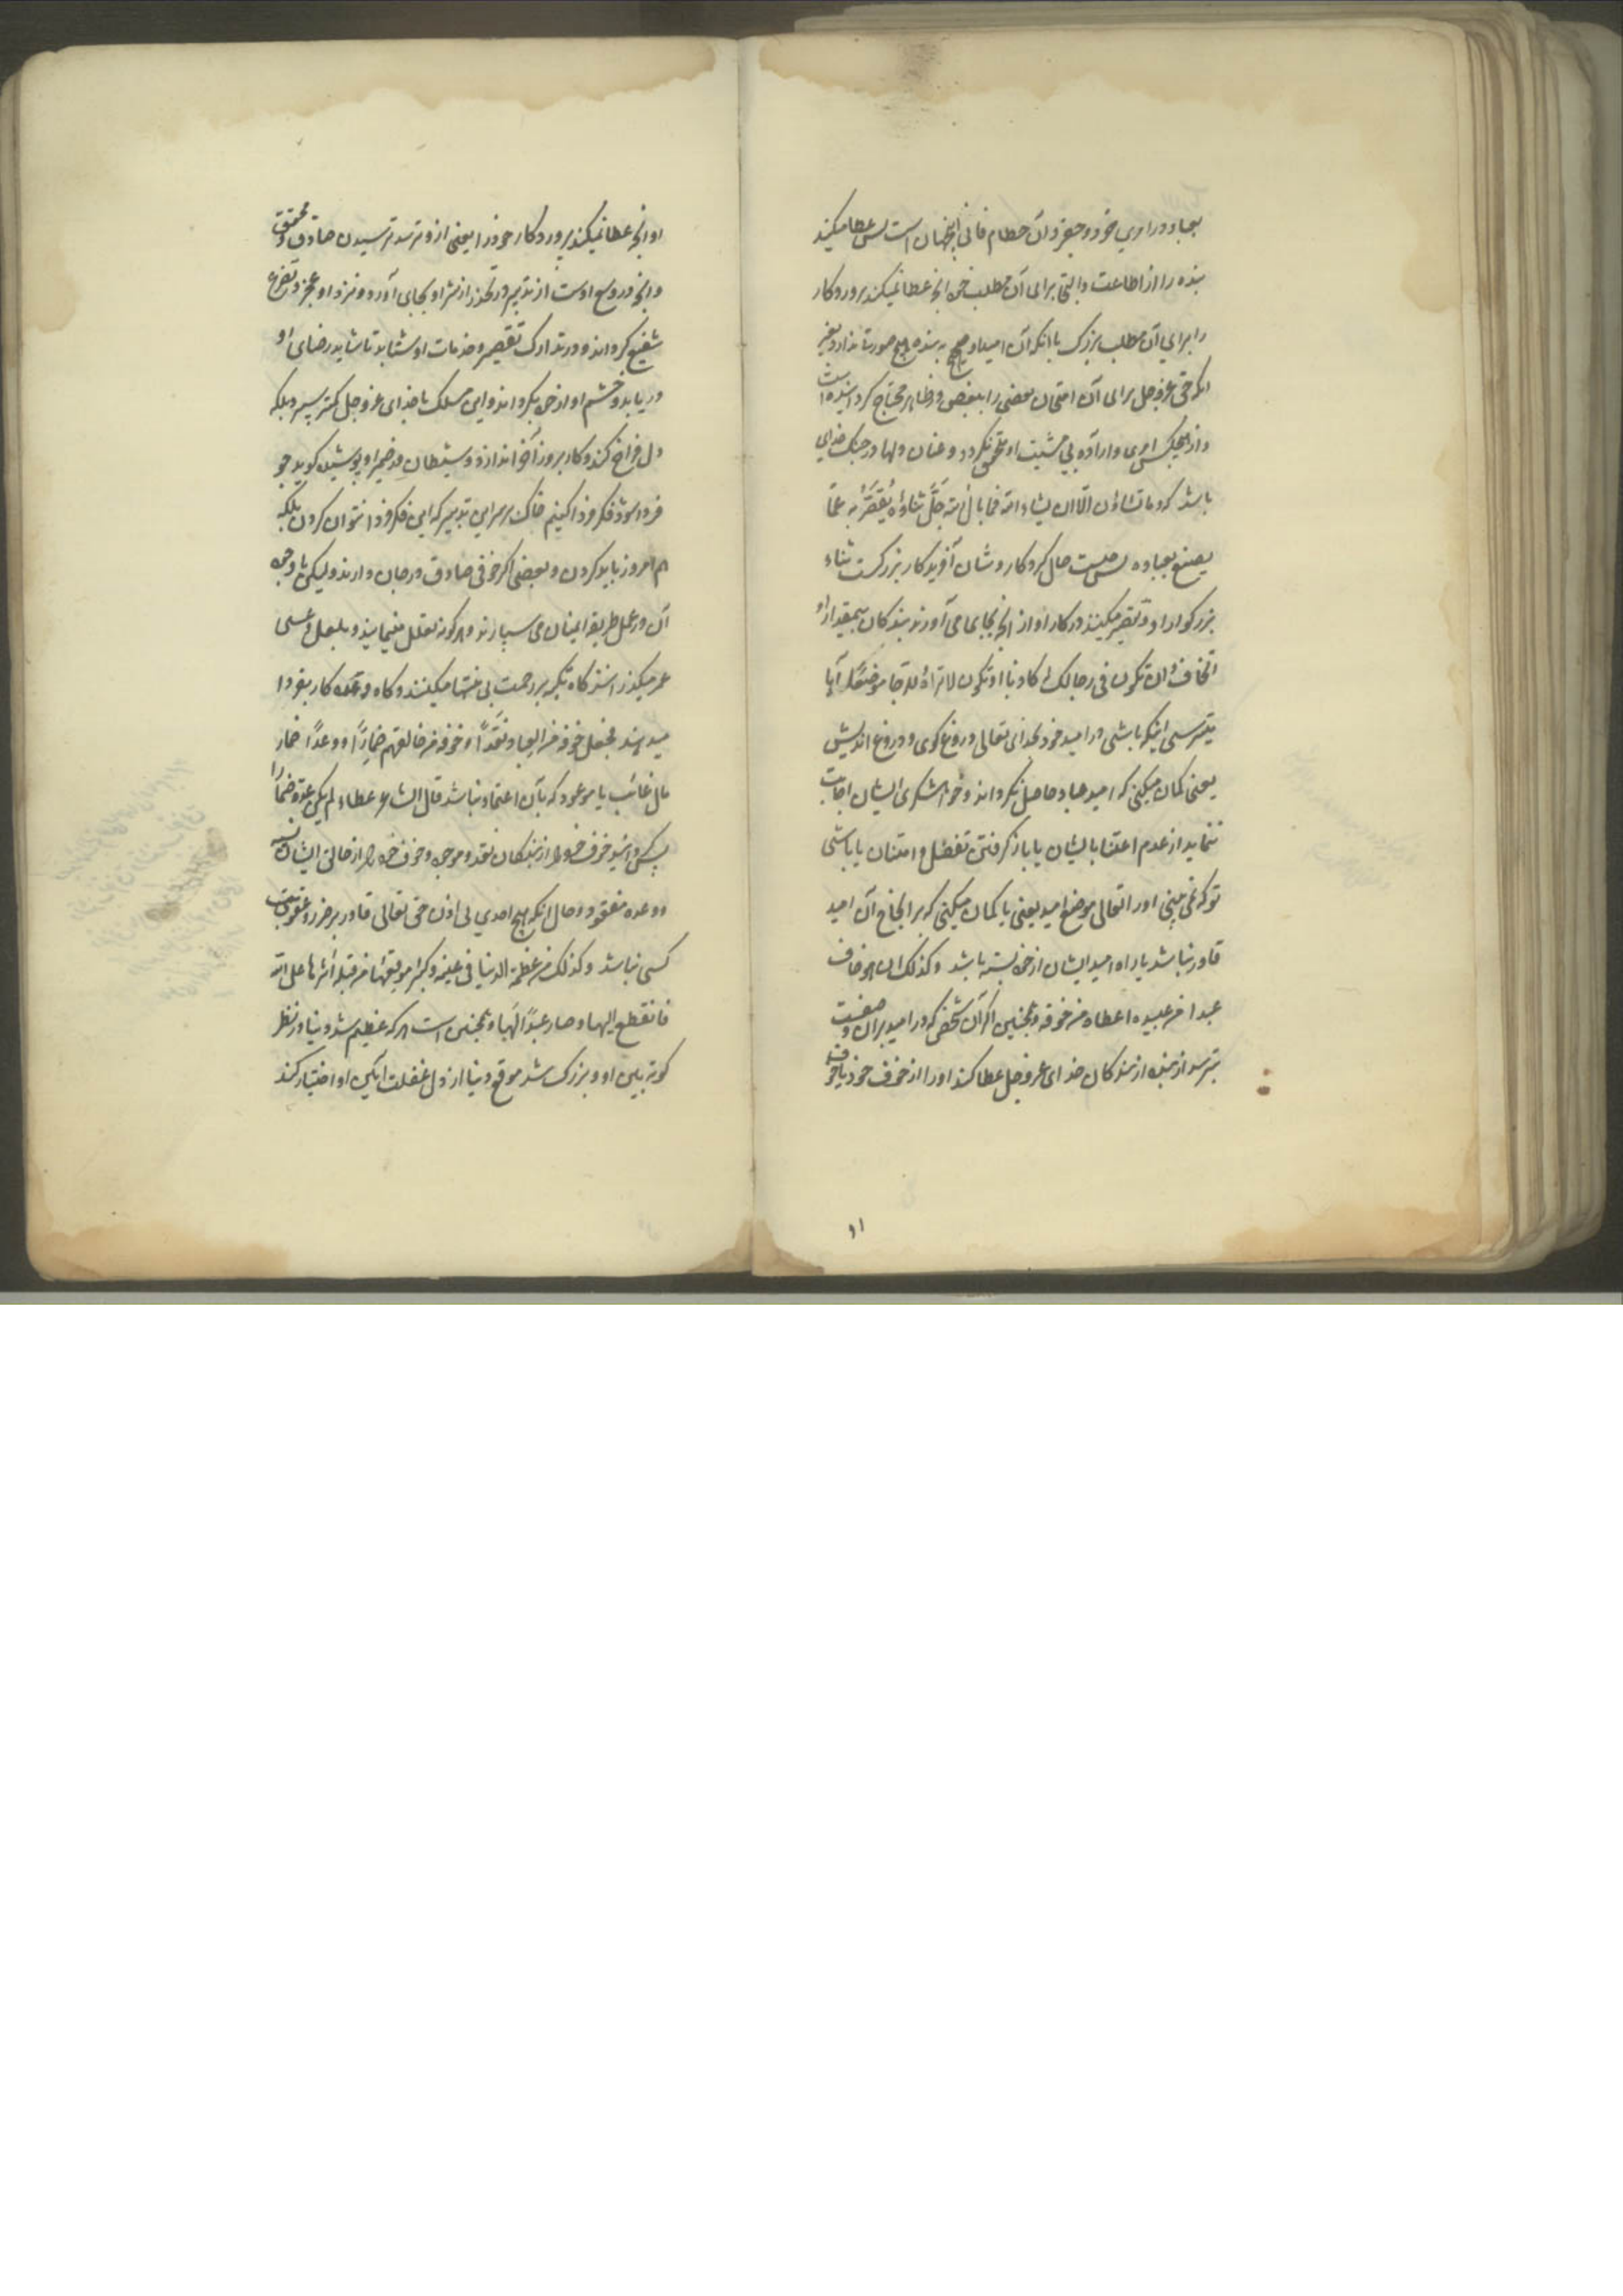 بعباد در امری خرد و حقیر و آن حطام فانی این جهان است پس عطا میکند
بنده را از اطاعت و التجا برای آن مطلب خود آنچه عطا نمیکند پروردکار
را برای آن مطلب بزرک با آنکه آن امید او هیچ به بنده هیچ صورت ندارد بغیر
آنکه حق عزوجل برای آن امتحان بعضی را ببعضی در ظاهر محتاج کردانیده است
و از هیچکس امری و اراده بی مشیت او متحقق نکردد و عنان دلها در چنک خدای
باشد که و ما تشاؤن الّا ان یشاء الله فما بال الله جَلَّ ثناؤه یُقَصَّرُ به عمّا
یصنع بعباده پس چیست حال کردکار و شان آفریدکار بزرکست ثناء
بزرکوار او تقصیر میکنند در کار او از آنچه بجای می آورند بندکان بیمقدار او
اتخاف ان تکون فی رجائک له کاذبا او تکون لا تراه للرجا موضعًا آیا
میترسی اینکه باشی در امید خود بخدای تعالی دروغ کوی و دروغ اندیش
یعنی کمان میکنی که امید عباد حاصل نکرداند و خواهشکری ایشان اجابت
ننماید از عدم اعتنا بایشان یا باز کرفتن تفضل و امتنان یا باشی
تو که نمی بینی او را تعالی موضع امید یعنی یا کمان میکنی که بر انجاح آن امید
قادر نباشد یا راه امید ایشان از خود بسته باشد و کذلک ان هو خاف
عبدا من عبیده اعطاه من خوفه و همچنین اکر آن شخص که در امید بر آن صفت
بترسد از بنده از بندکان خدای عزوجل عطا کند او را از خوف خود
او آنچه عطا نمیکند پروردکار خود را یعنی از و ترسد ترسیدن صادق و محقق
و آنچه در وسع اوست از تدبیر در تحذر از شر او بجای آورد و نزد او عجز و تضرع
شفیع کرداند و در تدارک تقصیر و خدمات او شتابد تا شاید رضای او
دریابد و خشم او از خود بکرداند و این مسلک با خدای عزوجل کمتر سپرد بلکه
دل فراخ کند و کار بروز آخر اندازد و شیطان در ضمیر او پوشیده کوید چو
فردا شود فکر فردا کنیم خاک بر سر این تدبیر که این فکر فردا نتوان کردن بلکه
هم امروز باید کردن و بعضی اکر خوفی صادق در جان دارند ولیکن با وجود
آن در عمل طریق ایشان می سپارند و هر کونه تعلل مینمایند و بلعل و عسی
عمر میکذرانند کاه تکیه بر رحمت بی منتها میکنند و کاه وعده کار بفردا
میدهند فجعل خوفه من العباد نقدًا و خوفه من خالقهم ضمارًا و وعدًا ضمار
مال غائب یا موعود که بآن اعتماد نباشد قال الشاعر عطاء لم یکن عدة ضمارا
پس کردانید خوف خود را از بندکان نقد و موجود و خوف خود را از خالق ایشان نسیه
و وعده مفقود و حال آنکه هیچ احدی بی اذن حق تعالی قادر بر ضرر و عقوبت
کسی نباشد و کذلک من عظمت الدنیا فی عینه و کبر موقعها من قلبه آثرها علی الله
فانقطع الیها و صار عبدًا لها و همچنین است هر که عظیم شد دنیا در نظر
کوته بین او و بزرک شد موقع دنیا از دل غفلت آئین او اختیار کند
۱۱